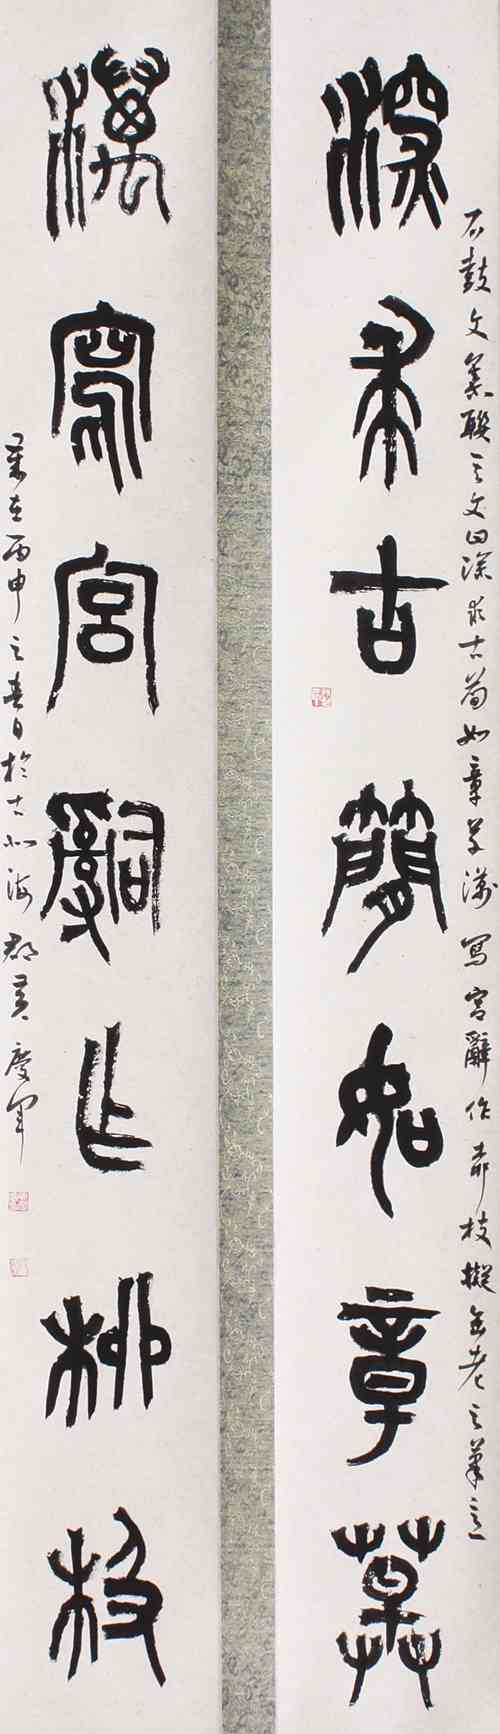 深求古簡如章草
石鼓文集聯之文曰深求古簡如章草澫寫宮辭作柳枝擬缶老之筆意
澫寫宮辭作柳枝
歲在丙申之春日於古北海郡慶軍